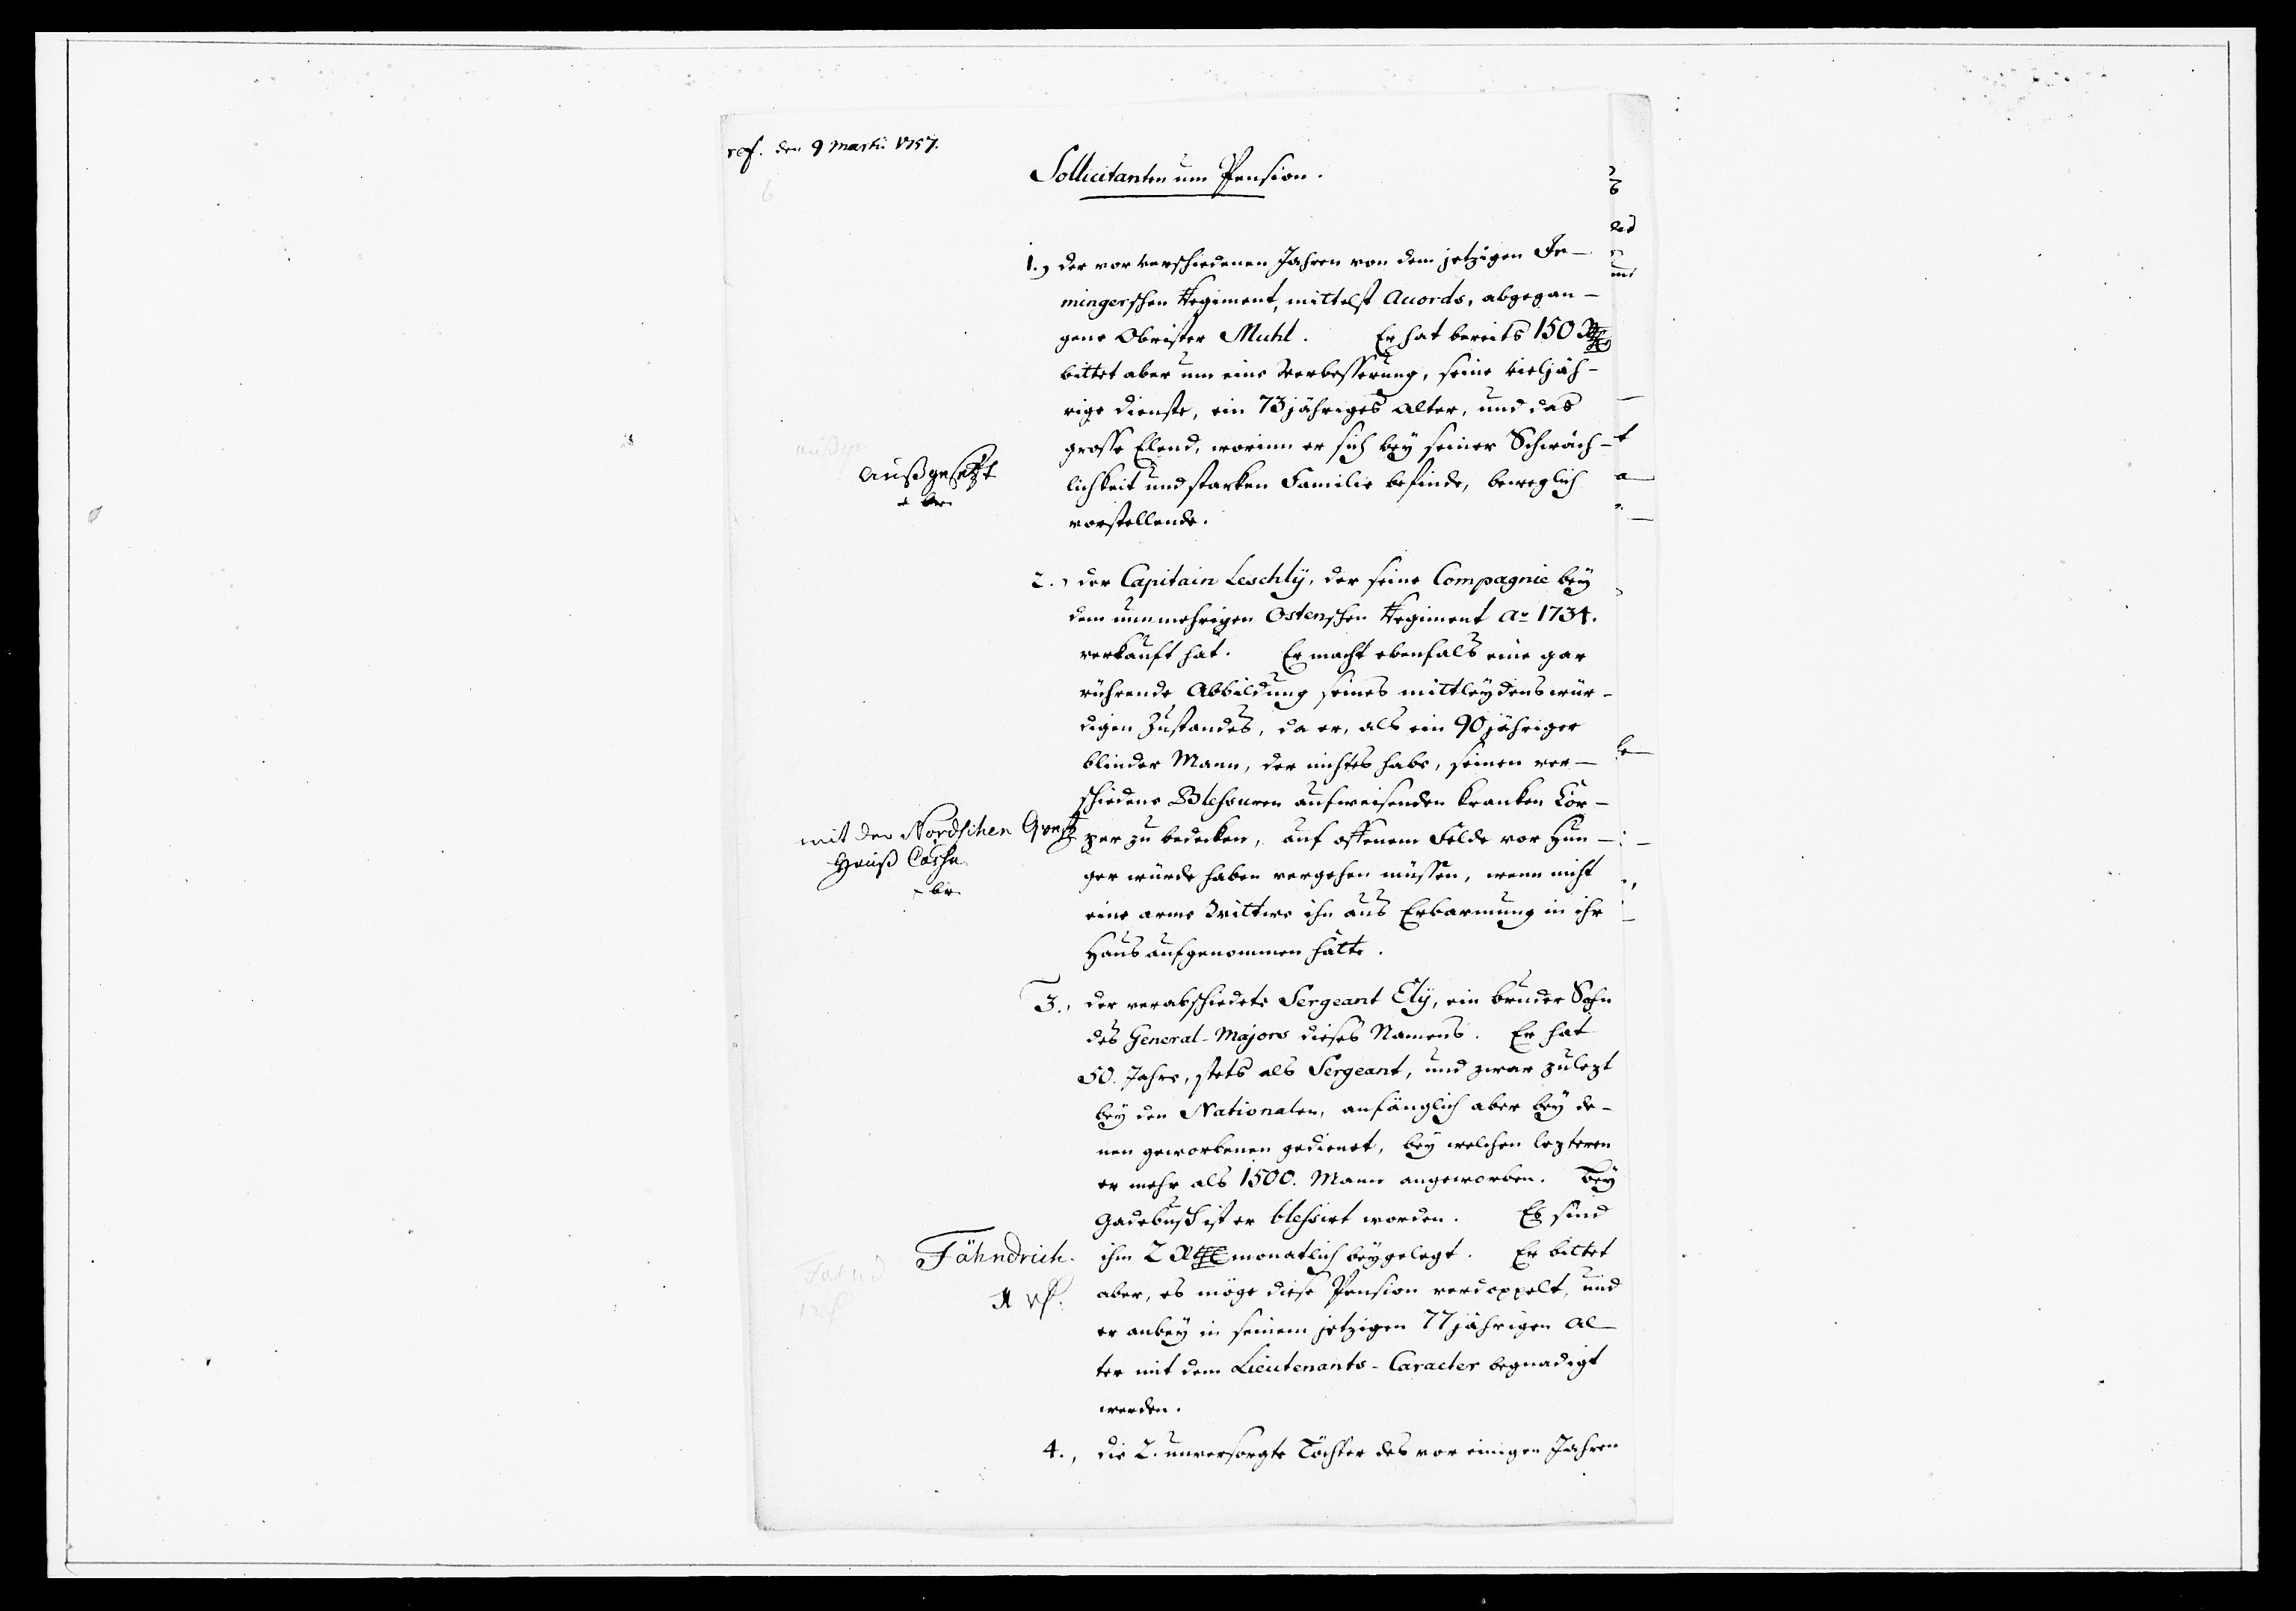 ref. den 9 Martii 1757.
Sollicitanten um Pension.
1., der vor verschiedenen Jahren von dem jetzigen Je-
mingerschen Regiment, mittelst Accords, abgegan-
gene Obrister Muhl. Er hat bereits 150 Rthl
bittet aber um eine Verbesserung, seine vieljäh-
rige Dienste, ein 73jähriges Alter, und das
grosse Elend, worinn er sich bey seiner Schwäch-
lichkeit und starken Familie befinde, beweglich
vorstellende.
außgesetzt
2., der Capitain Leschly, der seine Compagnie bey
dem nunmehrigen Ostenschen Regiment Ao 1734.
verkauft hat. Er macht ebenfals eine gar
rührende Abbildung seines mittleydenswür-
digen Zustandes, da er, als ein 90jähriger
blinder Mann, der nichts habe, seinen ver-
schiedene Blessuren aufweisenden kranken Cör-
per zu bedecken, auf offenem Felde vor Hun-
ger würde haben vergehen müssen, wenn nicht
eine arme Wittwe ihn aus Erbarmung in ihr
Haus aufgenommen hätte.
mit der Nordschen
Hauß Cassa
3., der verabschiedete Sergeant Ely, ein Bruder Sohn
des General-Majors dieses Namens. Er hat
50. Jahre, stets als Sergeant, und zwar zulezt
bey den Nationalen, anfänglich aber bey de-
nen geworbenen gedienet, bey welchen lezteren
er mehr als 1500. Mann angeworben. Bey
Gadebusch ist er blessirt worden. Es sind
ihm 2 Rthl monatlich beygelegt. Er bittet
aber, es möge diese Pension verdoppelt, und
er anbey in seinem jetzigen 77jährigen Al-
ter mit dem Lieutenants-Caracter begnadigt
werden.
Fähndrich.
4., die 2. unversorgte Töchter des vor einigen Jahren